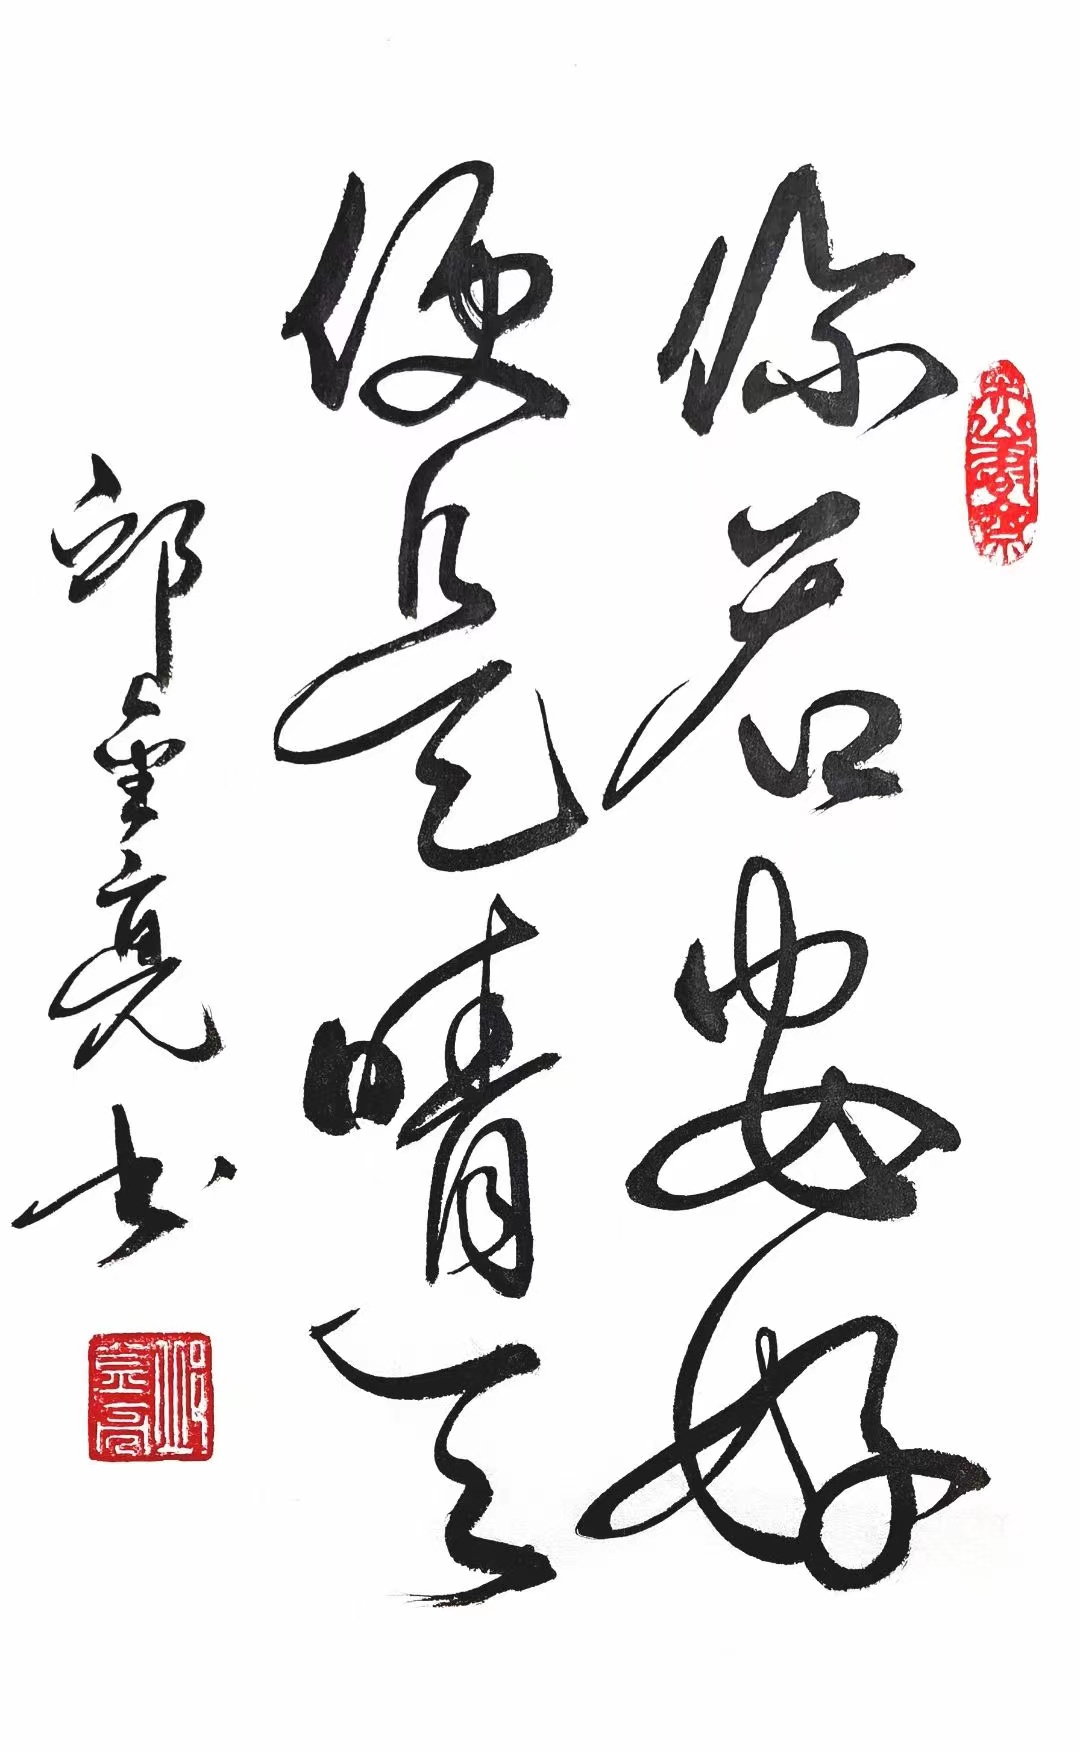 你若安好
便是晴天
邱立亮书